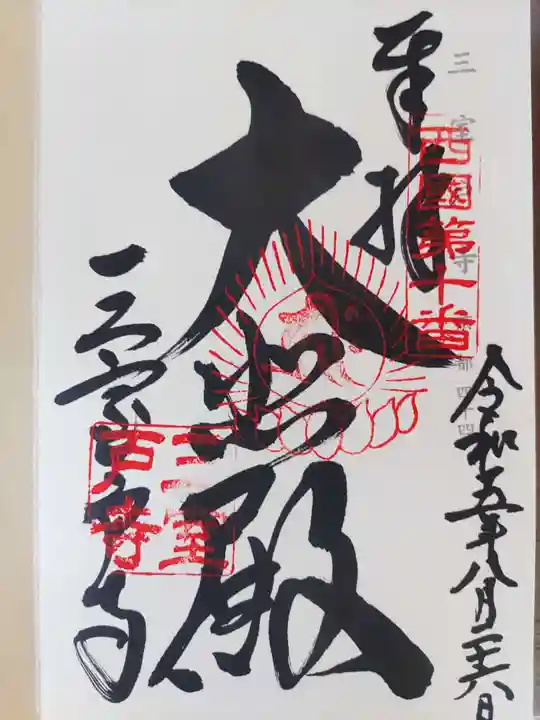 三室戸寺
奉拝
西國第十番
令和五年八月二十六日
大悲殿
三室戸寺
三室
戸寺